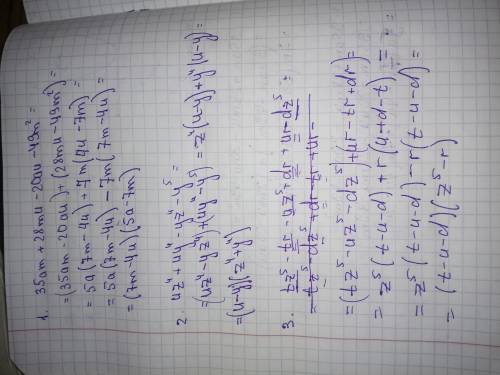 1. 35am + 28mu - 20au - 49m² =
= (35am - 20au) + (28mu - 49m²) =
= 5a(7m - 4u) + 7m(4u - 7m) =
= 5a(7m - 4u) - 7m(7m - 4u) =
= (7m - 4u)(5a - 7m)
2. uz⁴ + uy⁴ - yz⁴ - y⁵ =
= (uz⁴ - yz⁴) + (uy⁴ - y⁵) = z⁴(u - y) + y⁴(u - y) =
= (u - y)(z⁴ + y⁴)
3. tz⁵ - tr - uz⁵ + dr + ur - dz⁵ =
= (tz⁵ - uz⁵ - dz⁵) + (ur - tr + dr) =
= z⁵(t - u - d) + r(u + d - t) =
= z⁵(t - u - d) - r(t - u - d) =
= (t - u - d)(z⁵ - r)